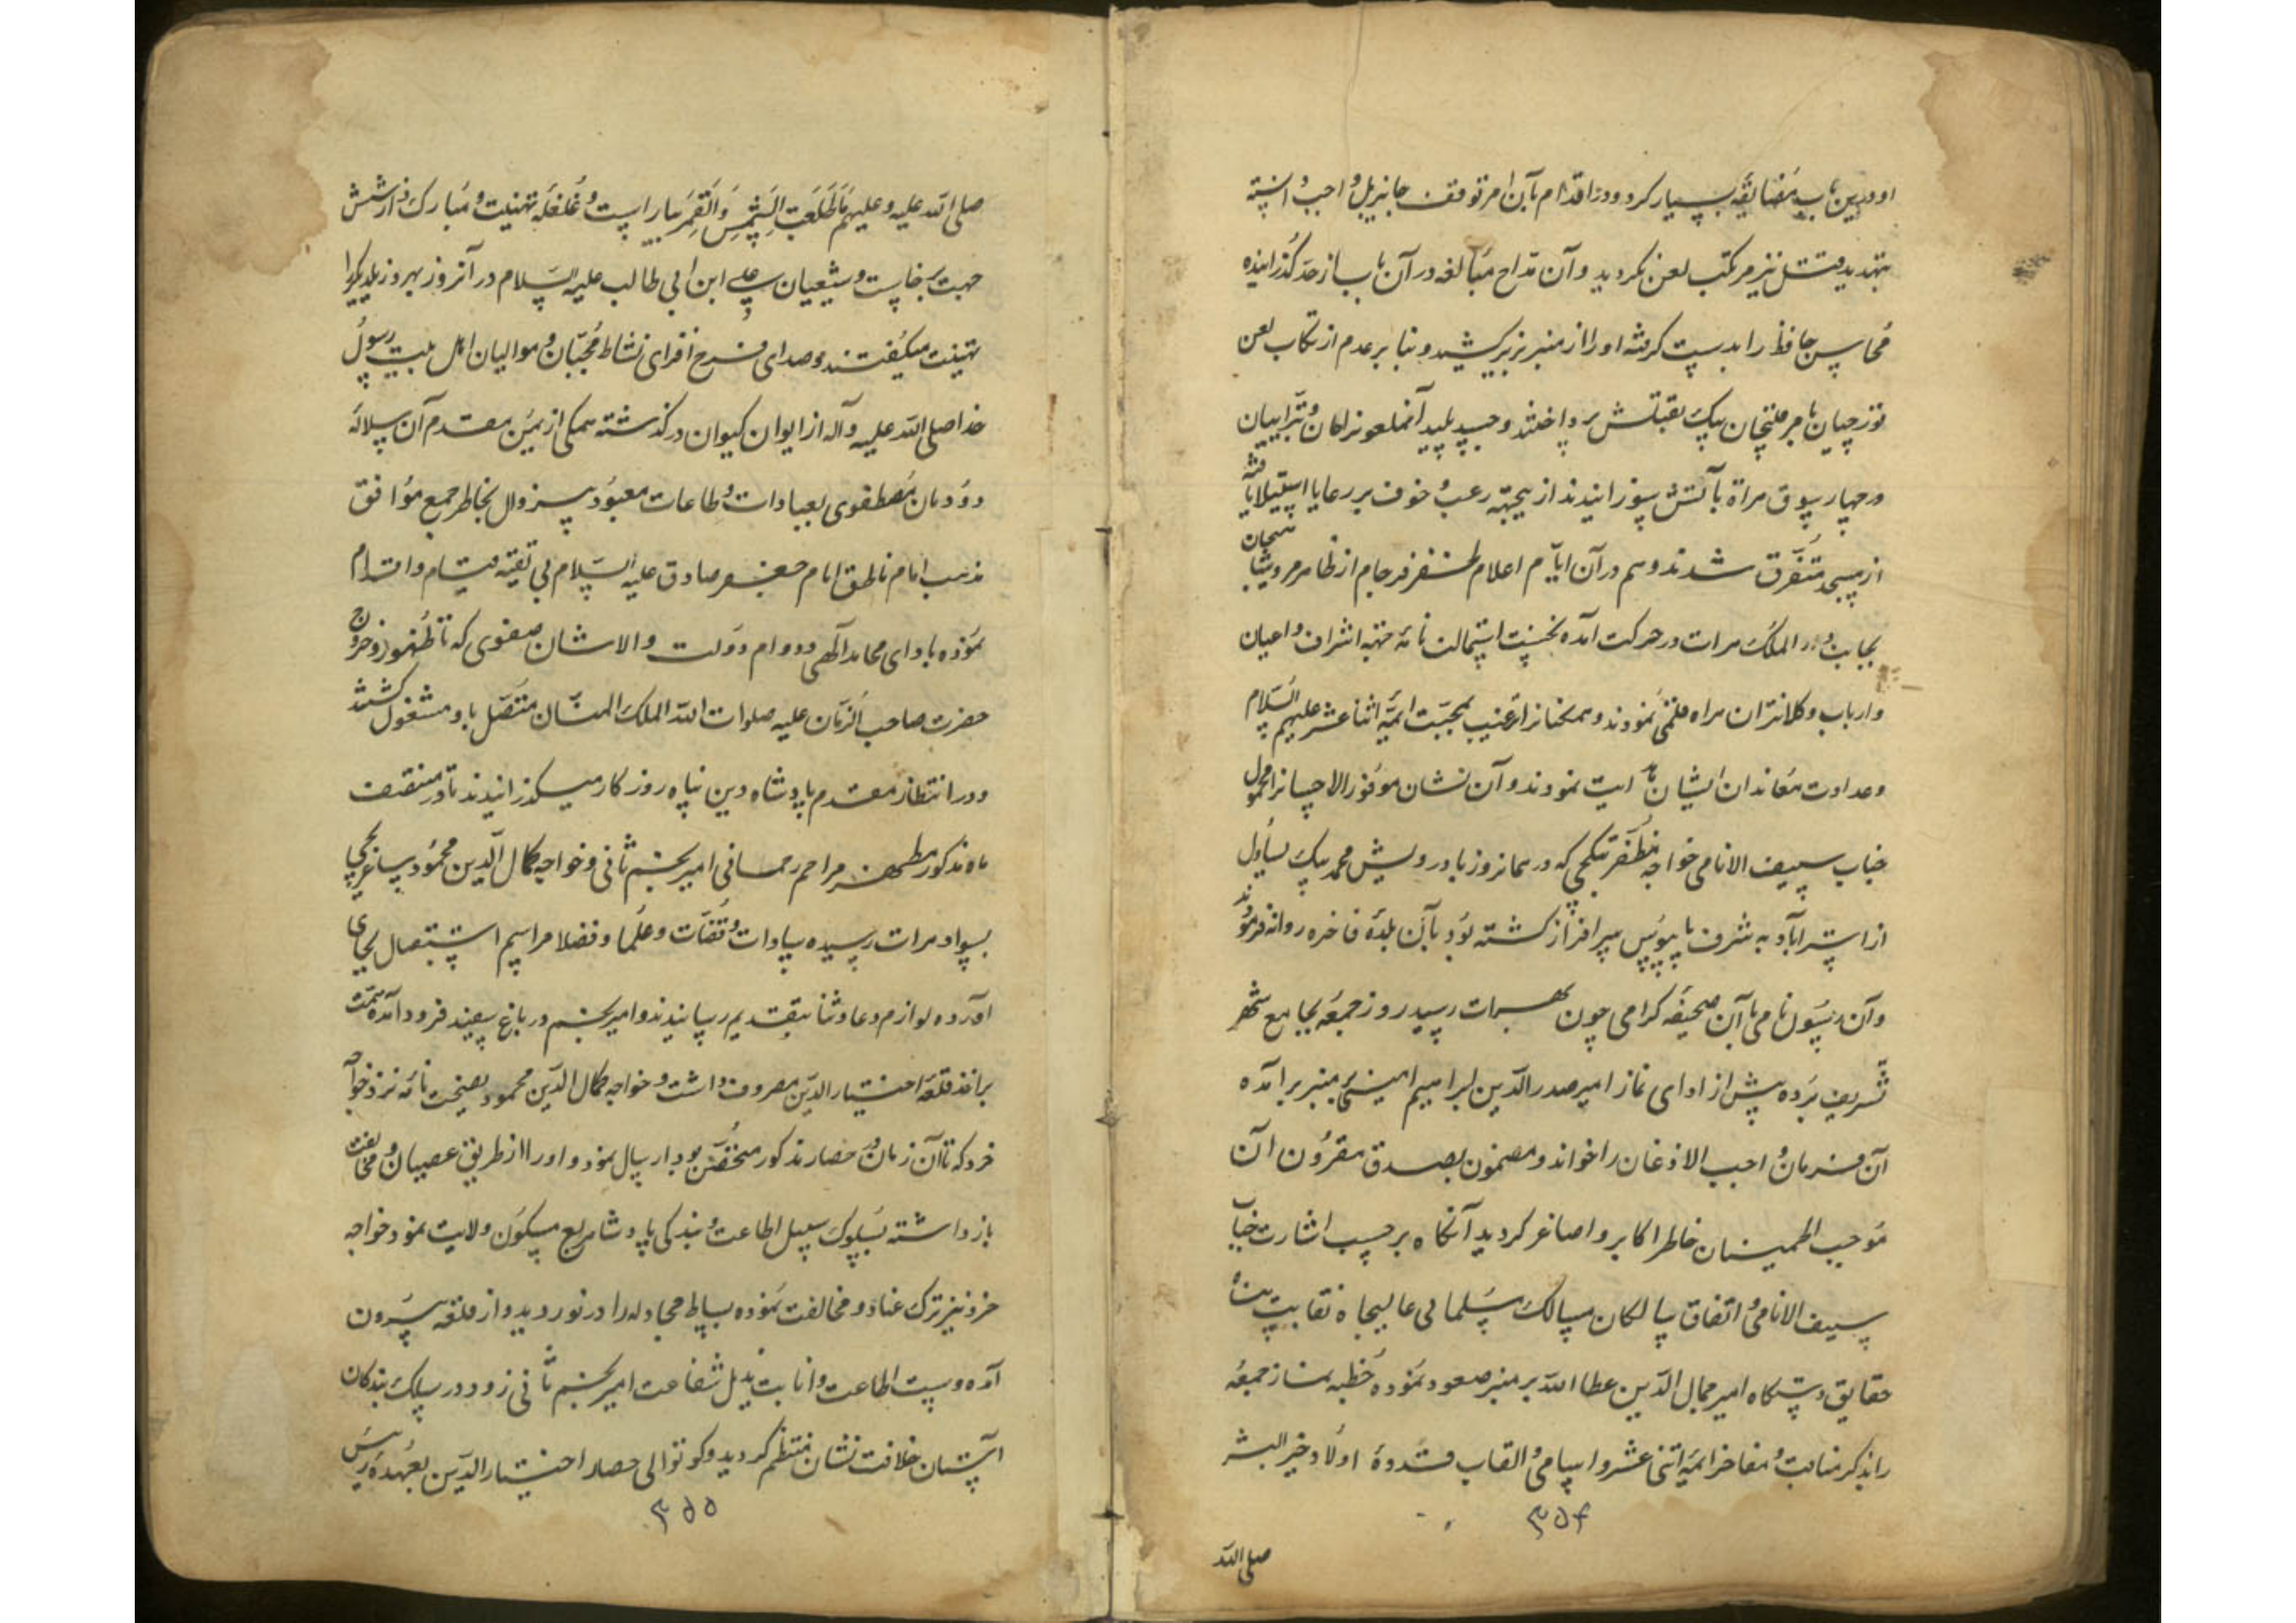 او درین باب مضایقه بسیار کرد و در اقدام بآن امر توقف جایز بل واجب دانسته
بتهدید قتل نیز مرتکب لعن نگردید و آن مداح مبالغه در آن باب از حد گذرانیده
محاسن حافظ را بدست گرفته او را از منبر بزیر کشید و بنا بر عدم ارتکاب لعن
قورچیان با مر قلیجان بیک بقتلش پرداختند و جسد پلید آنملعون را تبراییان
در چهار سوق هراة بآتش سوزانیدند ازینجهة رعب و خوف بر رعایا استیلا یافته
از مسجد متفرق شدند و هم در آن ایام اعلام ظفر فرجام از ظاهر مرو شاهیجان
بجانب دار الملک هرات در حرکت آمده نخست استمالت نامه جهة اشراف و اعیان
و ارباب و کلانتران هراه قلمی نمودند و همکنانرا ترغیب بمحبت ائمه اثنا عشر علیهم السلام
و عداوت معاندان ایشان نمودند و آن نشان موفور الاحسانرا محمول
جناب سیف الانامی خواجه مظفر بتکچی که در همانروز با درویش محمد بیک یساول
از استراباد به شرف پایبوس سرافراز کشته بود بآن بلده فاخره روانه فرمودند
و آن رسول نامی با آن صحیفه کرامی چون بهرات رسید روز جمعه بجامع شهر
تشریف برده پیش از ادای نماز امیر صدر الدین ابراهیم امینی بمنبر برامده
آن فرمان واجب الاذعان را خواند و مضمون بصدق مقرون آن
موجب اطمینان خاطر اکابر و اصاغر کردید آنکاه بر حسب اشارت جناب
سیف الانامی و اتفاق سالکان مسالک مسلمانی عالیجاه نقابت پناه
حقایق دستکاه امیر جمال الدین عطا الله بر منبر صعود نموده خطبه نماز جمعه
را بذکر مناقب و مفاخر ائمه اثنی عشر و اسامی و القاب قدوه اولاد خیر البشر
۳۵۴
صلی الله
صلی الله علیه و علیهم ما طلعت الشمس والقمر بیاراست و غلغله تهنیت و مبارکی از شش
جهت برخاست و شیعیان علی ابن ابی طالب علیه السلام در آنروز بهروز یکدیکر را
تهنیت میکفتند و صدای فرح افزای نشاط محبان و موالیان اهل بیت رسول
خدا صلی الله علیه و آله از ایوان کیوان در گذشته همکی از یمن مقدم آن سلاله
دودمان مصطفوی بعبادات و طاعات معبود بیزوال بخاطر جمع موافق
مذهب امام ناطق امام جعفر صادق علیه السلام بی تقیه قیام و اقدام
نموده بادای محامد آلهی و دوام دولت والاشان صفوی که تا ظهور و خروج
حضرت صاحب الزمان علیه صلوات الله الملک المنان متصل باد مشغول کشتند
و در انتظار مقدم پادشاه دین پناه روزکار میکذرانیدند تا در منتصف
ماه مذکور مظهر مراحم رحمانی امیر نجم ثانی و خواجه کمال الدین محمود ساغرچی
بسواد هرات رسیده سادات و قضات و علما و فضلا مراسم استقبال بجای
آورده لوازم دعا و ثنا بتقدیم رسانیدند و امیر نجم در باغ سفید فرود آمده همت
بر اخذ قلعه اختیار الدین مصروف داشت و خواجه کمال الدین محمود نصیحت نامه نزد خواجه
خرد که تا آن زمان در حصار مذکور متحصن بود ارسال نمود و او را از طریق عصیان و مخالفت
باز داشته بسلوک سبیل اطاعت و بندکی پادشاه ربع مسکون دلالت نمود خواجه
خرد نیز ترک عناد و مخالفت نموده بساط مجادله را در نوردید و از قلعه بیرون
آمده دست اطاعت و انابت بذیل شفاعت امیر نجم ثانی زد و در سلک بندکان
آستان خلافت نشان منتظم کردید و کوتوالی حصار اختیار الدین بعهده
۳۵۵